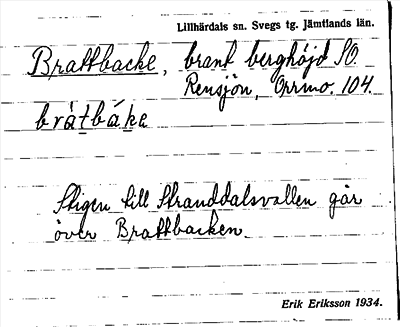 Lillhärdals sn. Svegs tg. Jämtlands län.
Brattbacke, brant berghöjd SO.
Rensjön, Orrmo. 104.
bràtbáke
Stigen till Stranddalsvallen går
över Brattbacken.
Erik Eriksson 1934.